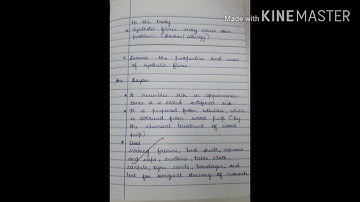 Made with KINEMASTER
to the body
• Synthetic fibres may cause skin
problems (dashes/allergy)
• Discuss the properties and uses
of synthetic fibres.
Ans Rayon
• It resembles silk in appearance
hence it is called artificial silk
• It is prepared from cellulose which
is obtained from wood pulp (by
the chemical treatment of wood
pulp)
• Uses
Making fabrics, bed sheets,
caps, curtains, table cloth,
carpets, tyre cords, bandages and
lint for surgical dressing of wounds.